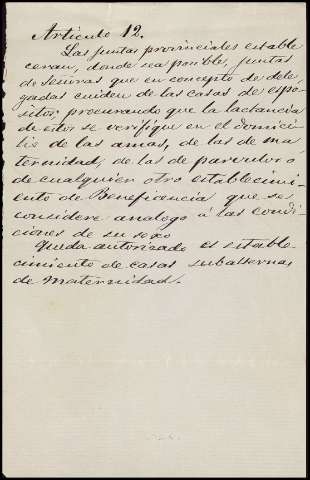 Articulo 12.
Las juntas provinciales estable
ceran, donde sea posible, juntas
de Señoras que en concepto de dele
gadas cuiden de las casas de espo
sitos, procurando que la lactancia
de estos se verifique en el domici
lio de las amas, de las de ma
ternidad, de las de parvulos o
de cualquier otro establecimi
ento de Beneficencia que se
considere analogo á las condi
ciones de su sexo
Queda autorizado el estable
cimiento de casas subalternas
de maternidad.